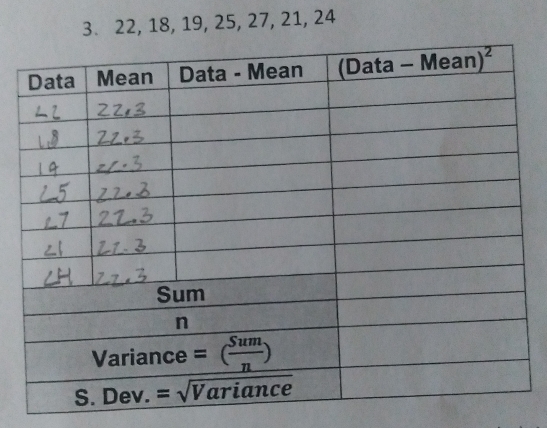 3. 22, 18, 19, 25, 27, 21, 24
Data Mean Data - Mean (Data – Mean)²
22 22.3
18 22.3
19 22.3
25 22.3
27 22.3
21 22.3
24 22.3
Sum
n
Variance = (Sum/n)
S. Dev. = √Variance